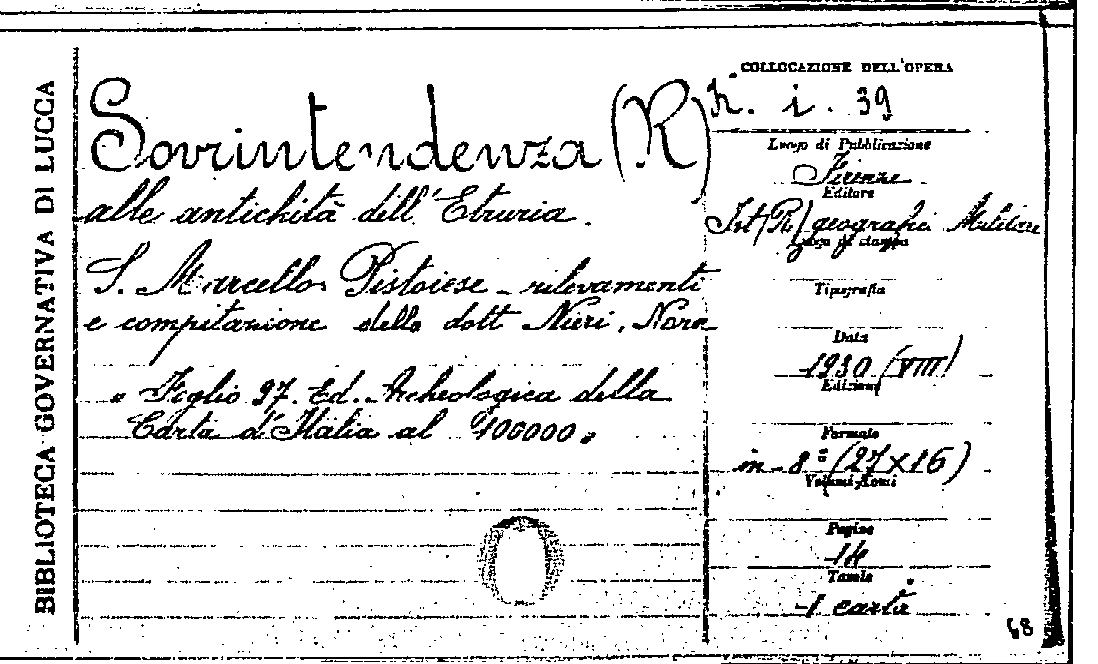 BIBLIOTECA GOVERNATIVA DI LUCCA
Sovrintendenza (R)
alle antichità dell'Etruria.
S. Marcello Pistoiese - rilevamenti
e compitazione dello dott Nieri, Nera
" Foglio 97. Ed. Archeologica della
Carta d'Italia al 100000"
COLLOCAZIONE DELL'OPERA
i. 39
Luogo di Pubblicazione
Firenze
Editore
Ist (R) geografici Militare
Luogo di stampa
Tipografia
Data
1930 (VIII)
Edizione
Formato
in - 8° (27 x 16)
Volumi-Tomi
Pagine
14
Tavole
1 carta
68